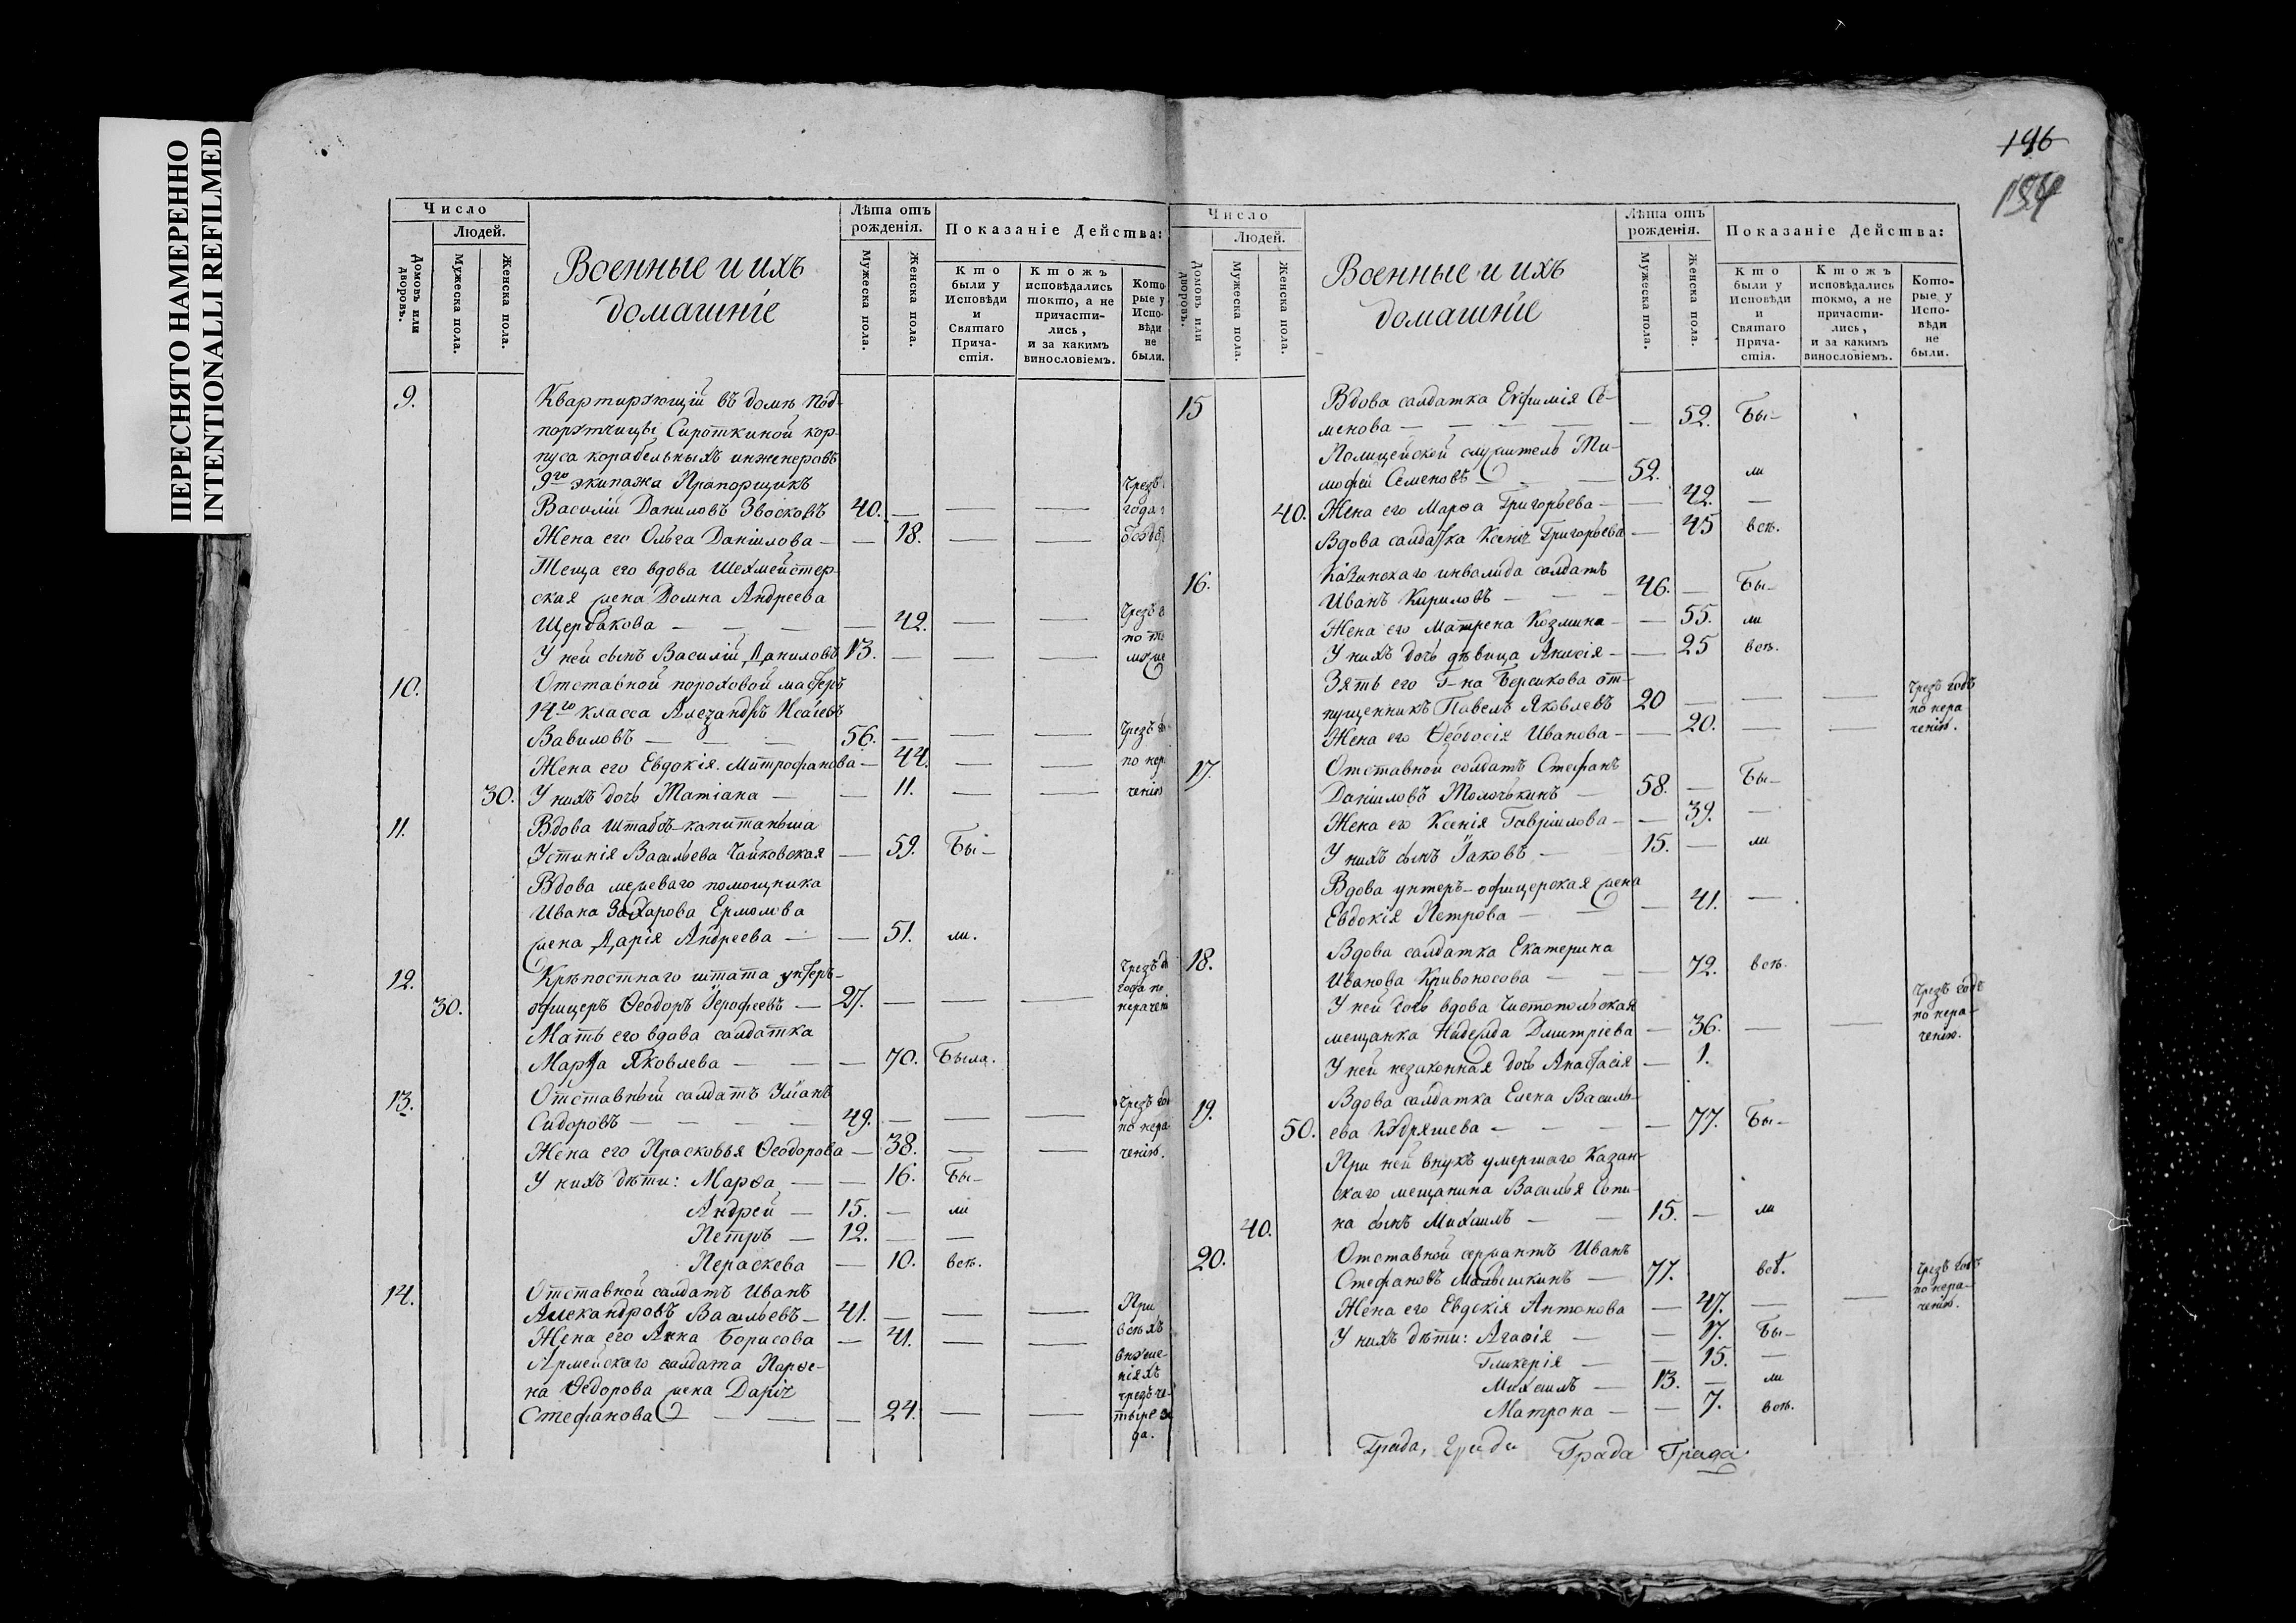 ПЕРЕСНЯТО НАМЕРЕННО
INTENTIONALLI REFILMED
Число
Людей.
Домовъ или дворовъ.
Мужеска пола.
Женска пола.
Военные и ихъ
домашнїе
Лѣта отъ
рожденія.
Мужеска пола.
Женска пола.
Показаніе Действа:
Кто
были у
Исповѣди
и
Святаго
Прича-
стія.
Ктожъ
исповѣдались
токмо, а не
причасти-
лись,
и за какимъ
винословіемъ.
Кото-
рые у
Испо-
вѣди
не
были.
9. Квартирующій въ домѣ Под-
порутчицы Сироткиной кор-
пуса корабельныхъ инженеровъ
9го экипажа Прапорщикъ Чрезъ
Василій Даниловъ Звосковъ 40. — — — года
Жена его Ольга Данїилова — — 18. — —
Теща его вдова Шехмейстер-
ская жена Домна Андреева
Щербакова — — — — 42. — — Чрезъ
У ней сынъ Василій Даниловъ 13. — — —
10. Отставной пороховой мастеръ
14го класса Александръ Исаевъ
Вавиловъ — — — 56. — — — Чрезъ
Жена его Евдокія Митрофанова — 44. — — по нер
30. У нихъ дочь Татіана — — 11. — — ченію
11. Вдова Штабсъ-капитанша
Устинія Васильева Чайковская — 59. Бы-
Вдова межеваго помощника
Ивана Захарова Ермолова
жена Дарія Андреева — — 51. ли.
12. Крѣпостнаго штата унтеръ- Чрезъ
30. офицеръ Ѳеодоръ Іерофеевъ — 27. — — — года по нерачені
Мать его вдова салдатка
Марѳа Яковлева — — — 70. Была.
13. Отставный салдатъ Уліанъ Чрезъ год
Сидоровъ — — — 49. — — — по нера
Жена его Прасковья Ѳеодорова — 38. — — ченію.
У нихъ дѣти: Марѳа — — 16. Бы-
Андрей — 15. — ли
Петръ — 12. — —
Параскева — 10. всѣ.
14. Отставной салдатъ Иванъ
Александровъ Васильевъ — 41. — — — При
Жена его Анна Борисова — 41. — — всѣхъ
Армейскаго салдата Парѳе- внуше-
ніяхъ
на Ѳедорова жена Дарія чрезъ че-
Стефанова — — — 24. — — тыре го
да.
196
194
Число
Людей.
Домовъ или дворовъ.
Мужеска пола.
Женска пола.
Военные и ихъ
домашнїе
Лѣта отъ
рожденія.
Мужеска пола.
Женска пола.
Показаніе Действа:
Кто
были у
Исповѣди
и
Святаго
Прича-
стія.
Ктожъ
исповѣдались
токмо, а не
причасти-
лись,
и за какимъ
винословіемъ.
Кото-
рые у
Испо-
вѣди
не
были.
15 Вдова салдатка Евфимія Се-
менова — — — — 52. Бы-
Полицейской служитель Ти-
мофей Семеновъ — 52. ли
40. Жена его Марѳа Григорьева — — 42. —
Вдова салдатка Ксенія Григорьева — 45 всѣ.
16. Казанскаго инвалида салдатъ
Иванъ Кириловъ — — 46. — Бы-
Жена его Матрена Козмина — — 55. ли
У нихъ дочь дѣвица Анисія — — 25 всѣ.
Зять его Г-на Берсикова от- Чрезъ годъ
пущенникъ Павелъ Яковлевъ 20 — — — по нера
Жена его Ѳеодосія Иванова — — 20. — — ченію.
17. Отставной солдатъ Стефанъ
Даніиловъ Толочькинъ — 58. — Бы-
Жена его Ксенія Гавріилова — — 39. —
У нихъ сынъ Іаковъ — 15. — ли
Вдова унтеръ-офицерская жена
Евдокія Петрова — — — 41. —
18. Вдова салдатка Екатерина
Иванова Кривоносова — — — 72. всѣ.
У ней дочь вдова Чистопольская Чрезъ годъ
мещанка Надежда Дмитріева — 36. — — по нера-
ченію.
У ней незаконная дочь Анастасія — 1.
19. Вдова салдатка Елена Василь-
50. ева Кудряшева — — — — 77. Бы-
При ней внукъ умершаго Казан-
скаго мещанина Василья Сопи-
40. на сынъ Михаилъ — — 15. — ли
20. Отставной сержантъ Иванъ
Стефановъ Малышкинъ — 77. всѣ. Чрезъ годъ
Жена его Евдокія Антонова — 47. — — по нера-
ченію.
У нихъ дѣти: Агафія — — 17. Бы-
Гликерія — — 15. —
Михаилъ — 13. — ли
Матрона — — 7. всѣ.
Града, Града Града Града